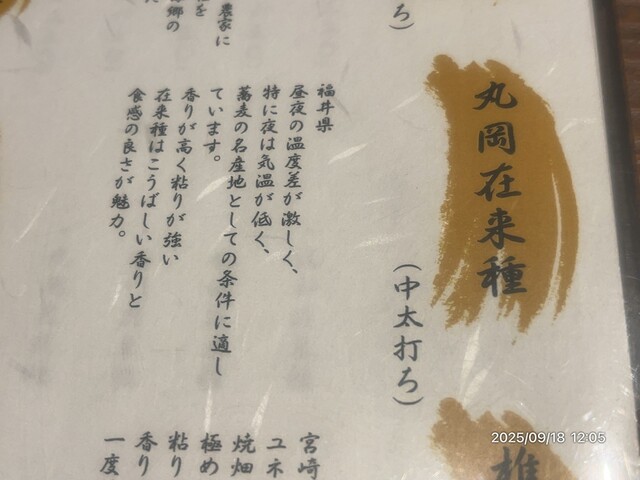 ろ)
農家に
郷の
丸岡在来種
(中太打ろ)
福井県
昼夜の温度差が激しく、
特に夜は気温が低く、
蕎麦の名産地としての条件に適し
ています。
香りが高く粘りが強い
在来種はこうばしい香りと
食感の良さが魅力。
椎
宮崎
ユネ
焼畑
極め
粘り
香り
一度
2025/09/18 12:05